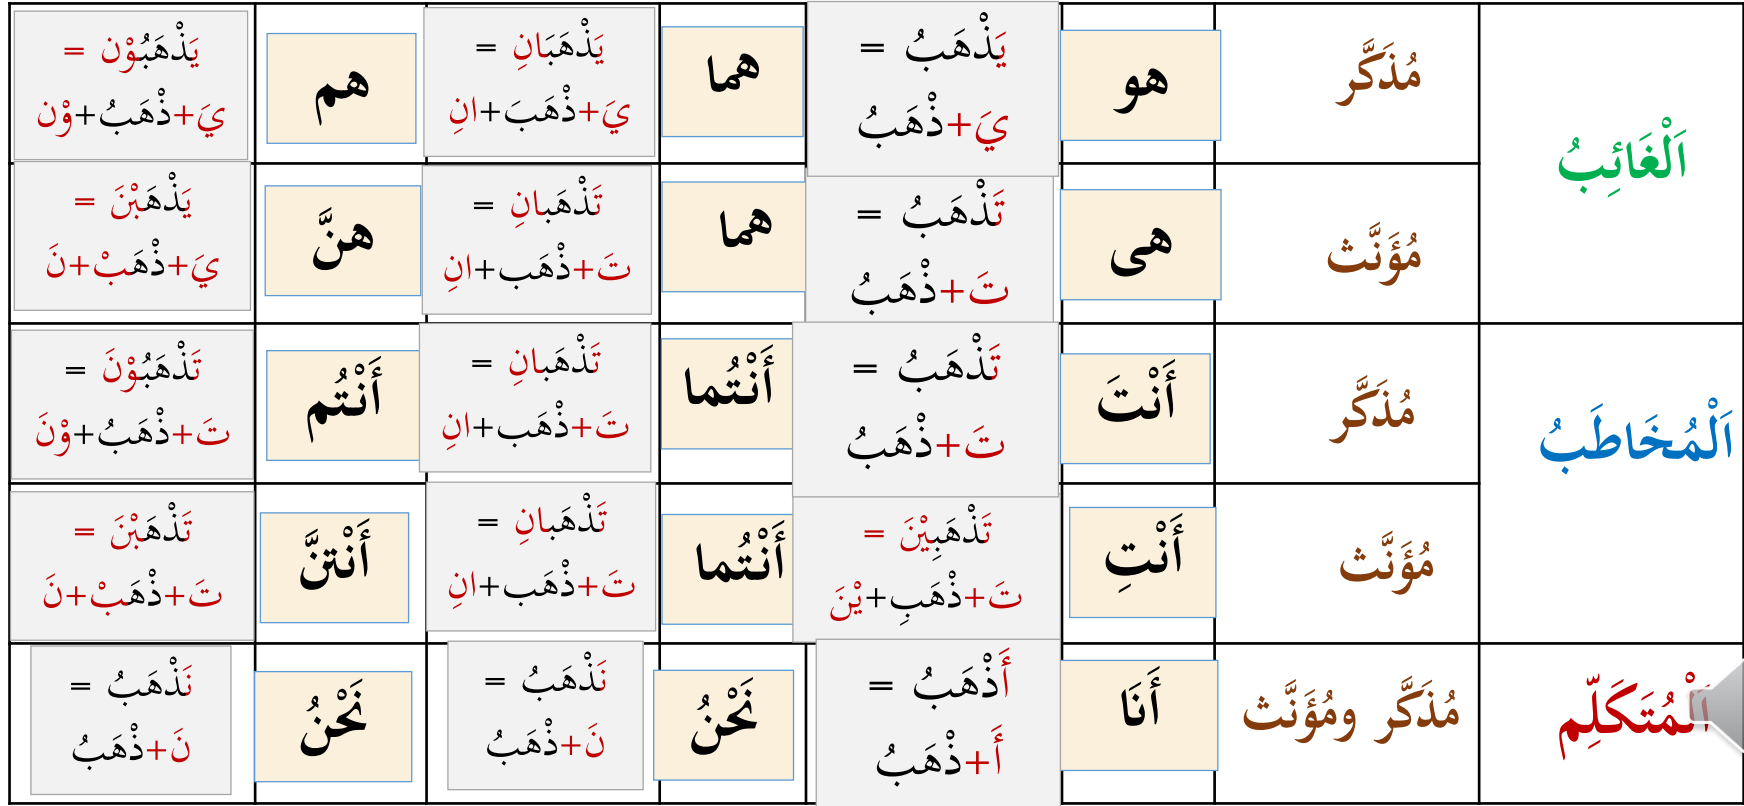 اَلْغَائِبُ
مُذَكَّر
هو
يَذْهَبُ =
يَ+ذْهَبُ
هما
يَذْهَبَانِ =
يَ+ذْهَبَ+انِ
هم
يَذْهَبُوْن =
يَ+ذْهَبُ+وْن
مُؤَنَّث
هى
تَذْهَبُ =
تَ+ذْهَبُ
هما
تَذْهَبانِ =
تَ+ذْهَب+انِ
هنَّ
يَذْهَبْنَ =
يَ+ذْهَبْ+نَ
اَلْمُخَاطَبُ
مُذَكَّر
أَنْتَ
تَذْهَبُ =
تَ+ذْهَبُ
أَنْتُما
تَذْهَبانِ =
تَ+ذْهَب+انِ
أَنْتُم
تَذْهَبُوْنَ =
تَ+ذْهَبُ+وْنَ
مُؤَنَّث
أَنْتِ
تَذْهَبِيْنَ =
تَ+ذْهَبِ+يْنَ
أَنْتُما
تَذْهَبانِ =
تَ+ذْهَب+انِ
أَنْتنَّ
تَذْهَبْنَ =
تَ+ذْهَبْ+نَ
اَلْمُتَكَلِّم
مُذَكَّر ومُؤَنَّث
أَنَا
أَذْهَبُ =
أَ+ذْهَبُ
نَحْنُ
نَذْهَبُ =
نَ+ذْهَبُ
نَحْنُ
نَذْهَبُ =
نَ+ذْهَبُ